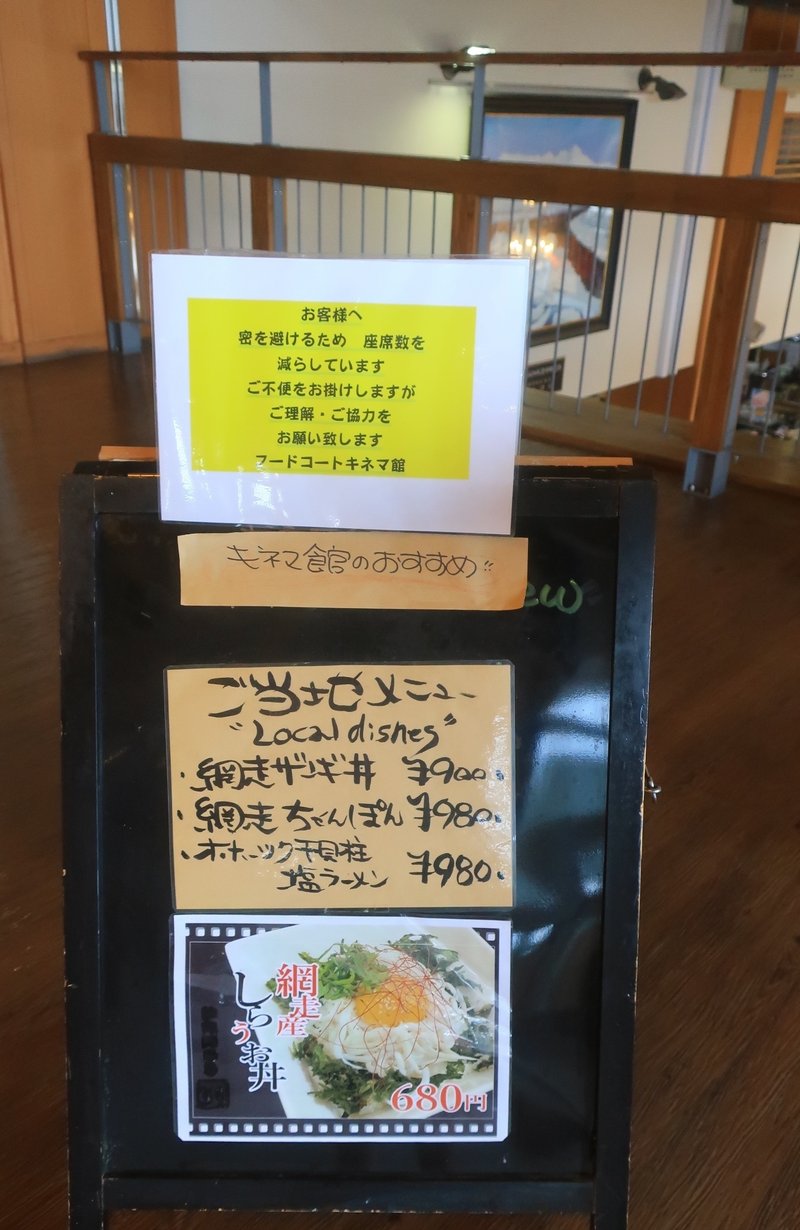 お客様へ
密を避けるため　座席数を
減らしています
ご不便をお掛けしますが
ご理解・ご協力を
お願い致します
フードコートキネマ館
キネマ館のおすすめ!!
ew
ご当地メニュー
"Local dishes"
・網走ザンギ丼 ¥900.
・網走ちゃんぽん ¥980.
・オホーツク干貝柱
塩ラーメン ¥980.
網走産
しらうお丼
680円